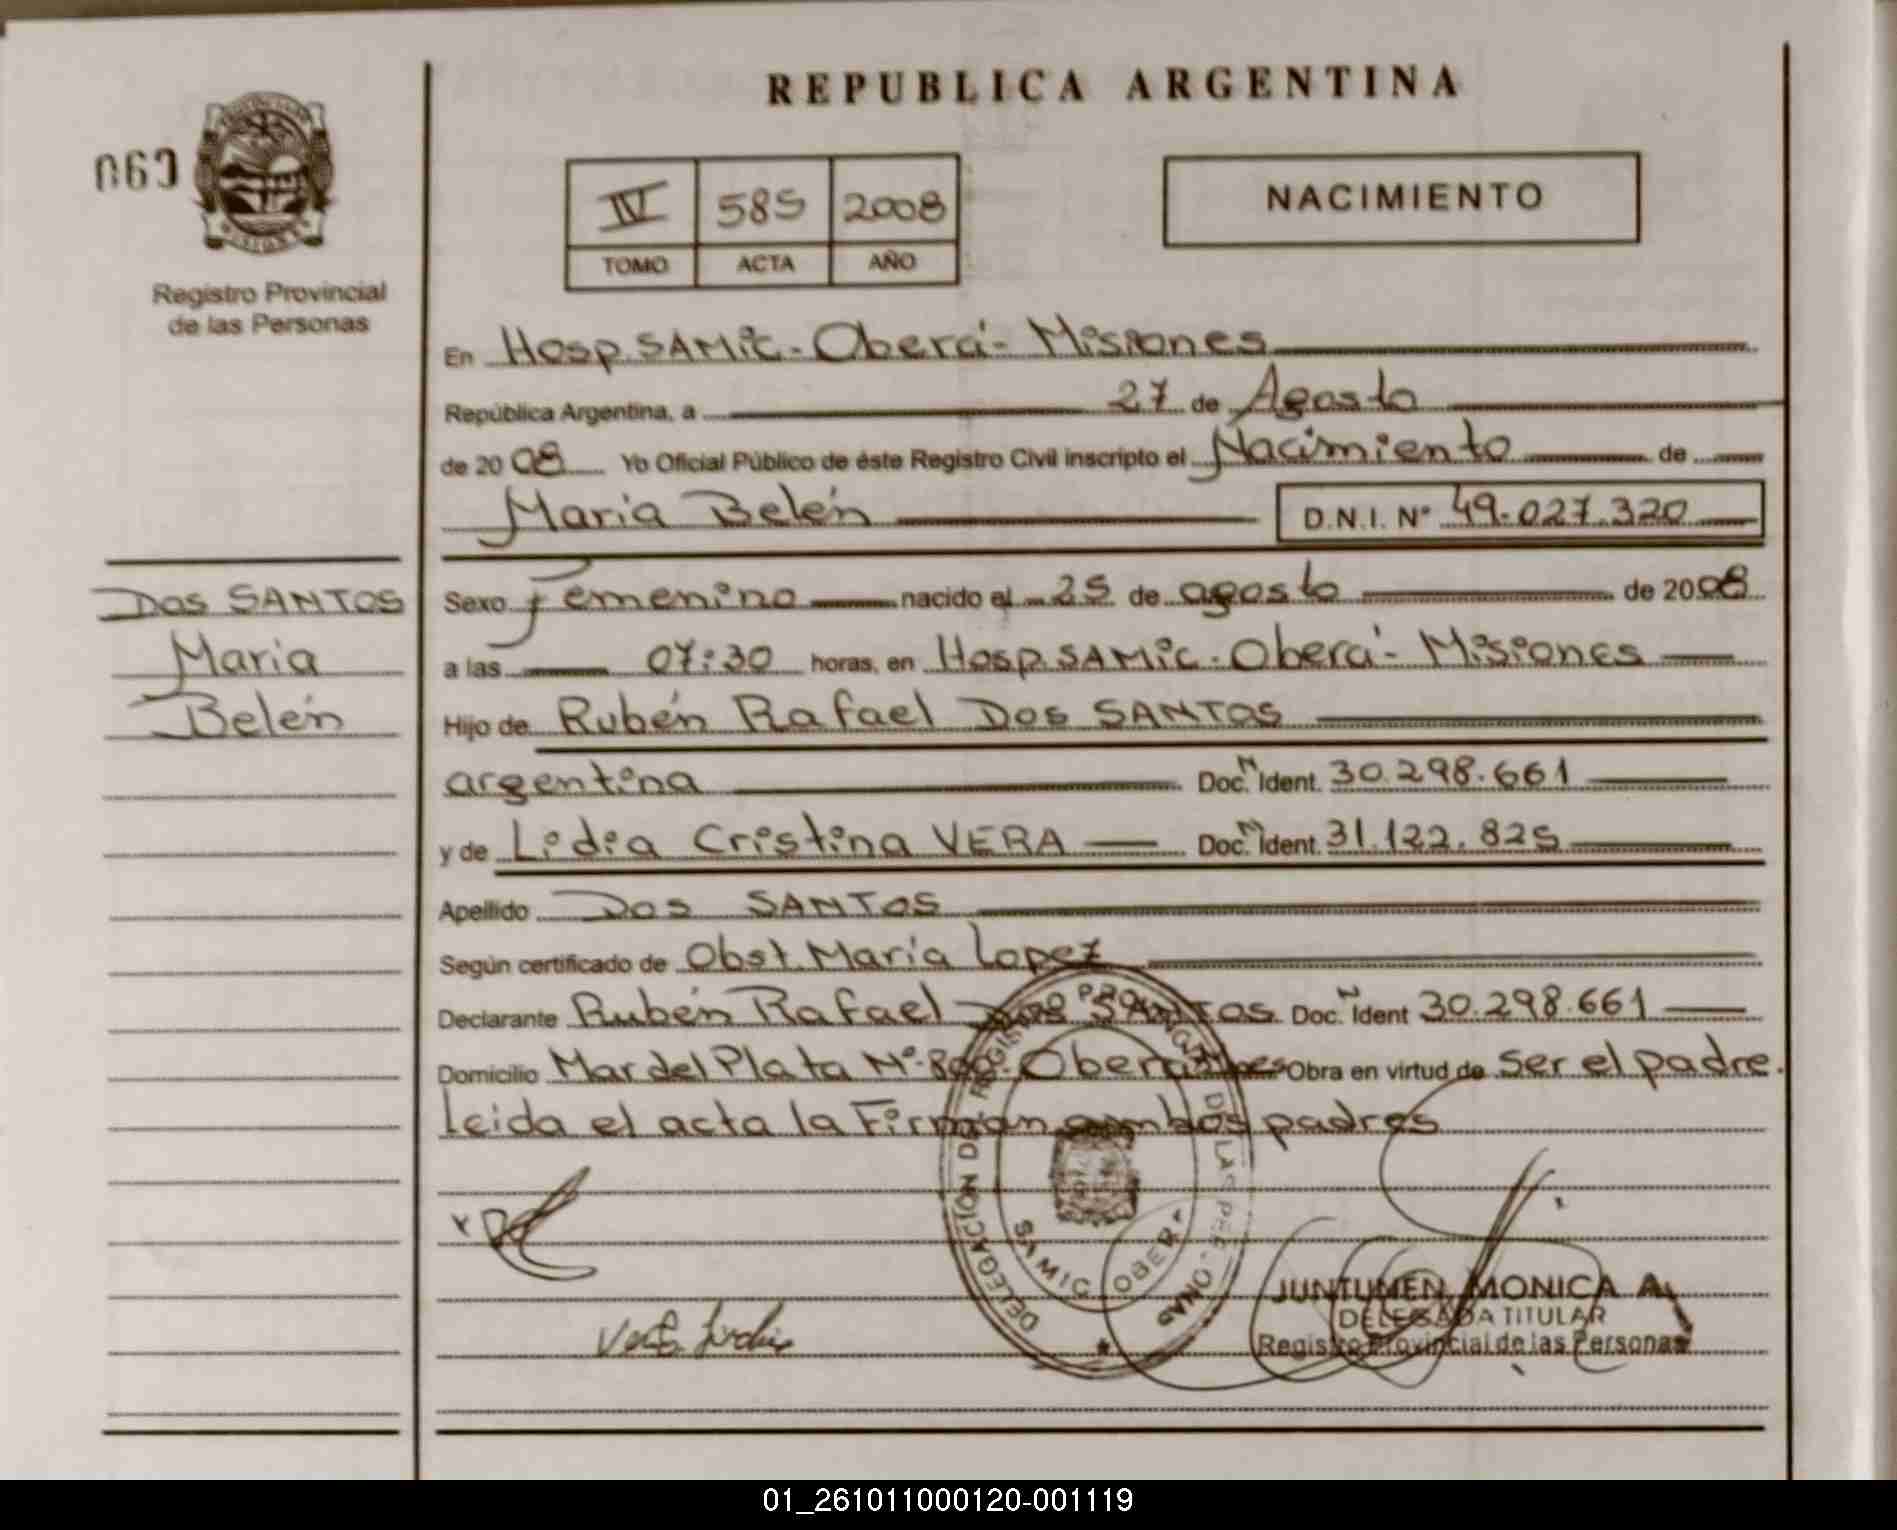 REPUBLICA ARGENTINA
060
IV 585 2008
TOMO ACTA AÑO
NACIMIENTO
Registro Provincial
de las Personas
En Hosp. SAMic - Oberá - Misiones
República Argentina, a 27 de Agosto
de 2008 Yo Oficial Público de éste Registro Civil inscripto el Nacimiento de
Maria Belén D.N.I. N° 49.027.320
Dos SANTOS
Maria
Belén
Sexo Femenino nacido el 25 de agosto de 2008
a las 07:30 horas, en Hosp. SAMic - Oberá - Misiones
Hijo de Rubén Rafael Dos SANTOS
argentina Doc. N Ident. 30.298.661
y de Lidia Cristina VERA Doc. N Ident. 31.122.825
Apellido Dos SANTOS
Según certificado de Obst. Maria Lopez
Declarante Rubén Rafael Dos SANTOS Doc. N Ident 30.298.661
Domicilio Mar del Plata N°- 800- Oberá Obra en virtud de ser el padre.
Leida el acta la Firman ambos padres
DELEGACIÓN DEL REGISTRO PROVINCIAL DE LAS PERSONAS
SAMIC OBERA
JUNTUNEN, MONICA A.
DELEGADA TITULAR
Registro Provincial de las Personas
01_261011000120-001119